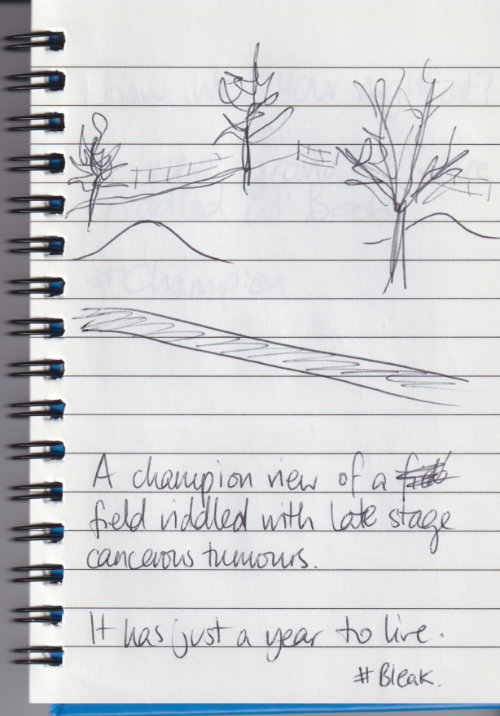 A champion view of a
field riddled with late stage
cancerous tumours.
It has just a year to live.
#Bleak.